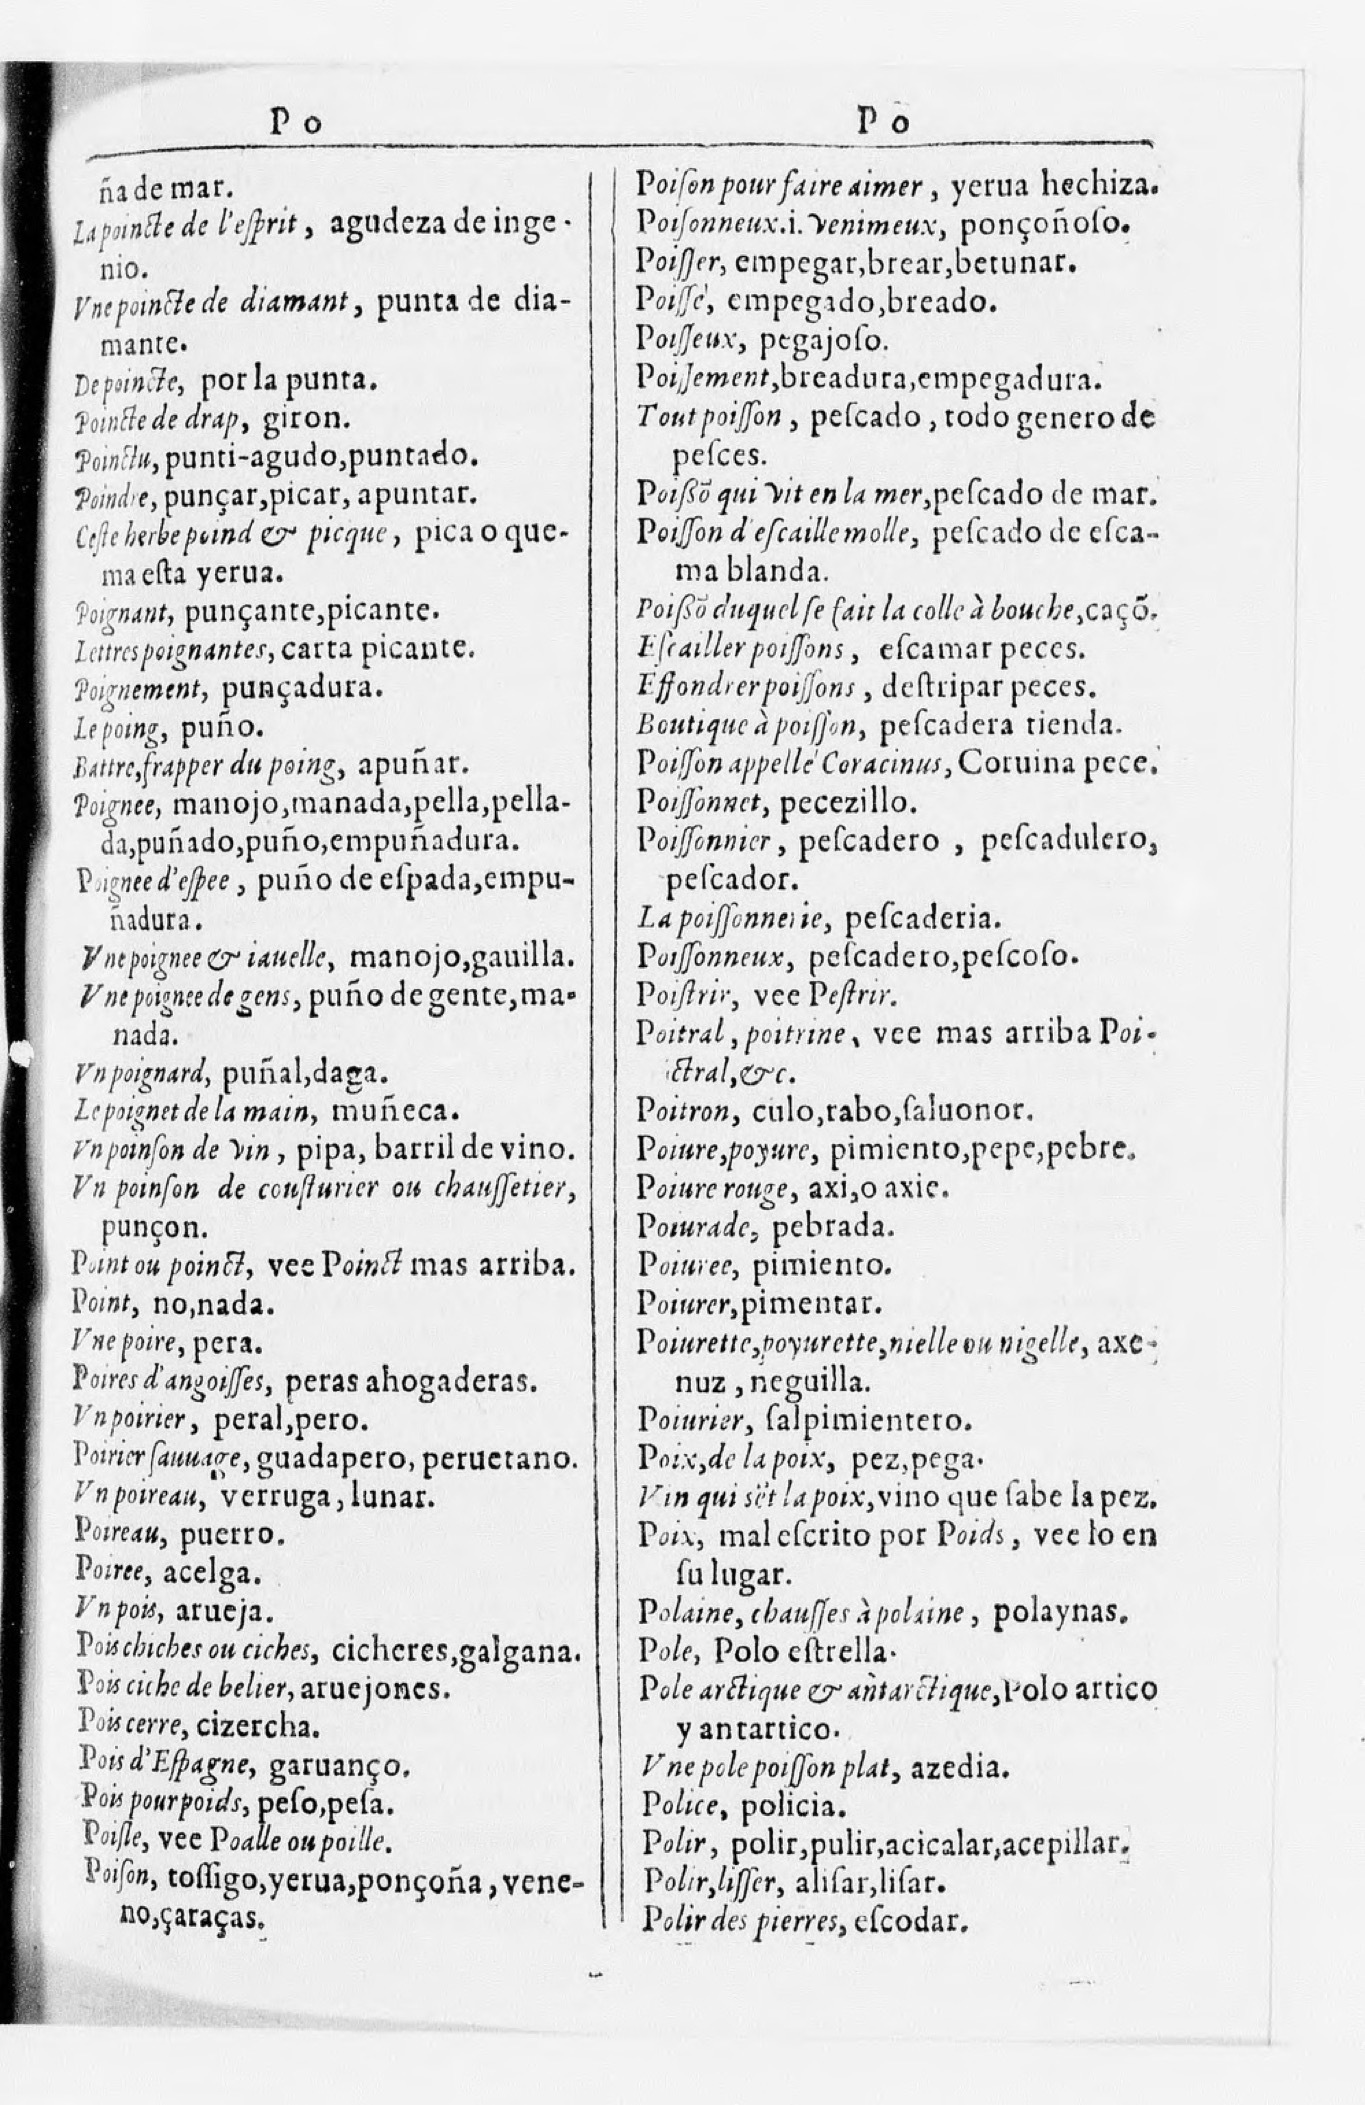 Po
Po
ña de mar.
La poincte de l'eſprit, agudeza de inge-
nio.
Vne poincte de diamant, punta de dia-
mante.
De poincte, por la punta.
Poincte de drap, giron.
Poinctu, punti-agudo,puntado.
Poindre, punçar,picar, apuntar.
Ceſte herbe poind & picque, pica o que-
ma eſta yerua.
Poignant, punçante,picante.
Lettres poignantes, carta picante.
Poignement, punçadura.
Le poing, puño.
Battre,frapper du poing, apuñar.
Poignee, manojo,manada,pella,pella-
da,puñado,puño,empuñadura.
Poignee d'eſpee, puño de eſpada,empu-
ñadura.
Vne poignee & iauelle, manojo,gauilla.
Vne poignee de gens, puño de gente,ma-
nada.
Vn poignard, puñal,daga.
Le poignet de la main, muñeca.
Vn poinſon de vin, pipa, barril de vino.
Vn poinſon de couſturier ou chauſſetier,
punçon.
Point ou poinct, vee Poinct mas arriba.
Point, no,nada.
Vne poire, pera.
Poires d'angoiſſes, peras ahogaderas.
Vn poirier, peral,pero.
Poirier ſauuage, guadapero, peruetano.
Vn poireau, verruga, lunar.
Poireau, puerro.
Poiree, acelga.
Vn pois, arueja.
Pois chiches ou ciches, cicheres,galgana.
Pois ciche de belier, aruejones.
Pois cerre, cizercha.
Pois d'Eſpagne, garuanço.
Pois pour poids, peſo,peſa.
Poiſle, vee Poalle ou poille.
Poiſon, toſſigo,yerua,ponçoña, vene-
no,çaraças.
Poiſon pour faire aimer, yerua hechiza.
Poiſonneux.i. venimeux, ponçoñoſo.
Poiſſer, empegar,brear,betunar.
Poiſſé, empegado,breado.
Poiſſeux, pegajoſo.
Poiſſement,breadura,empegadura.
Tout poiſſon, peſcado, todo genero de
peſces.
Poißõ qui vit en la mer,peſcado de mar.
Poiſſon d'eſcaille molle, peſcado de eſca-
ma blanda.
Poißõ duquel ſe fait la colle à bouche,caçõ.
Eſcailler poiſſons, eſcamar peces.
Effondrer poiſſons, deſtripar peces.
Boutique à poiſſon, peſcadera tienda.
Poiſſon appellé Coracinus, Coruina pece.
Poiſſonnet, pecezillo.
Poiſſonnier, peſcadero, peſcadulero,
peſcador.
La poiſſonnerie, peſcaderia.
Poiſſonneux, peſcadero,peſcoſo.
Poiſtrir, vee Peſtrir.
Poitral, poitrine, vee mas arriba Poi-
ctral,&c.
Poitron, culo,rabo,ſaluonor.
Poiure,poyure, pimiento,pepe,pebre.
Poiure rouge, axi,o axie.
Poiurade, pebrada.
Poiuree, pimiento.
Poiurer,pimentar.
Poiurette,poyurette,nielle ou nigelle, axe-
nuz, neguilla.
Poiurier, ſalpimientero.
Poix,de la poix, pez,pega.
Vin qui sẽt la poix,vino que ſabe la pez.
Poix, mal eſcrito por Poids, vee lo en
ſu lugar.
Polaine, chauſſes à polaine, polaynas.
Pole, Polo eſtrella.
Pole arctique & antarctique,Polo artico
y antartico.
Vne pole poiſſon plat, azedia.
Police, policia.
Polir, polir,pulir,acicalar,acepillar.
Polir,liſſer, aliſar,liſar.
Polir des pierres, eſcodar.